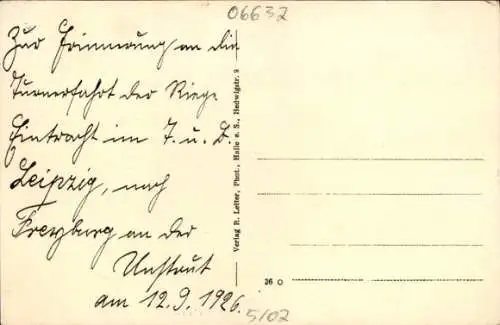 06632
Zur Erinnerung an die
Turnerfahrt der Riege
Eintracht im T. u. D.
Leipzig, nach
Freyburg an der
Unstrut
am 12.9.1926.
Verlag R. Leiter, Phot., Halle a. S., Hedwigstr. 9
36 O
5/02